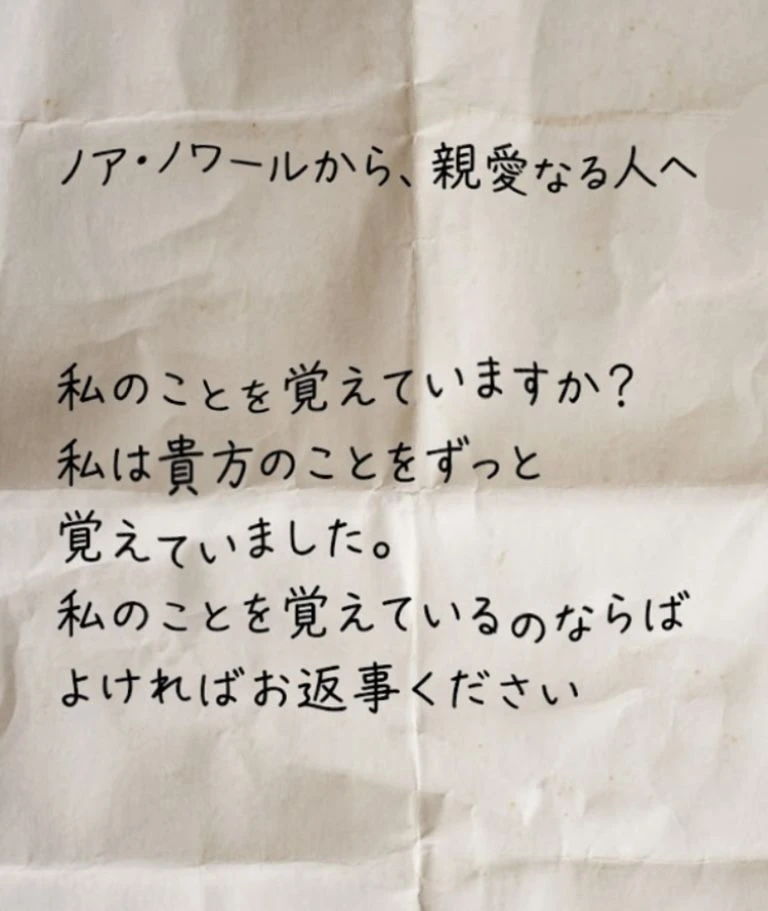 ノア・ノワールから、親愛なる人へ
私のことを覚えていますか？
私は貴方のことをずっと
覚えていました。
私のことを覚えているのならば
よければお返事ください